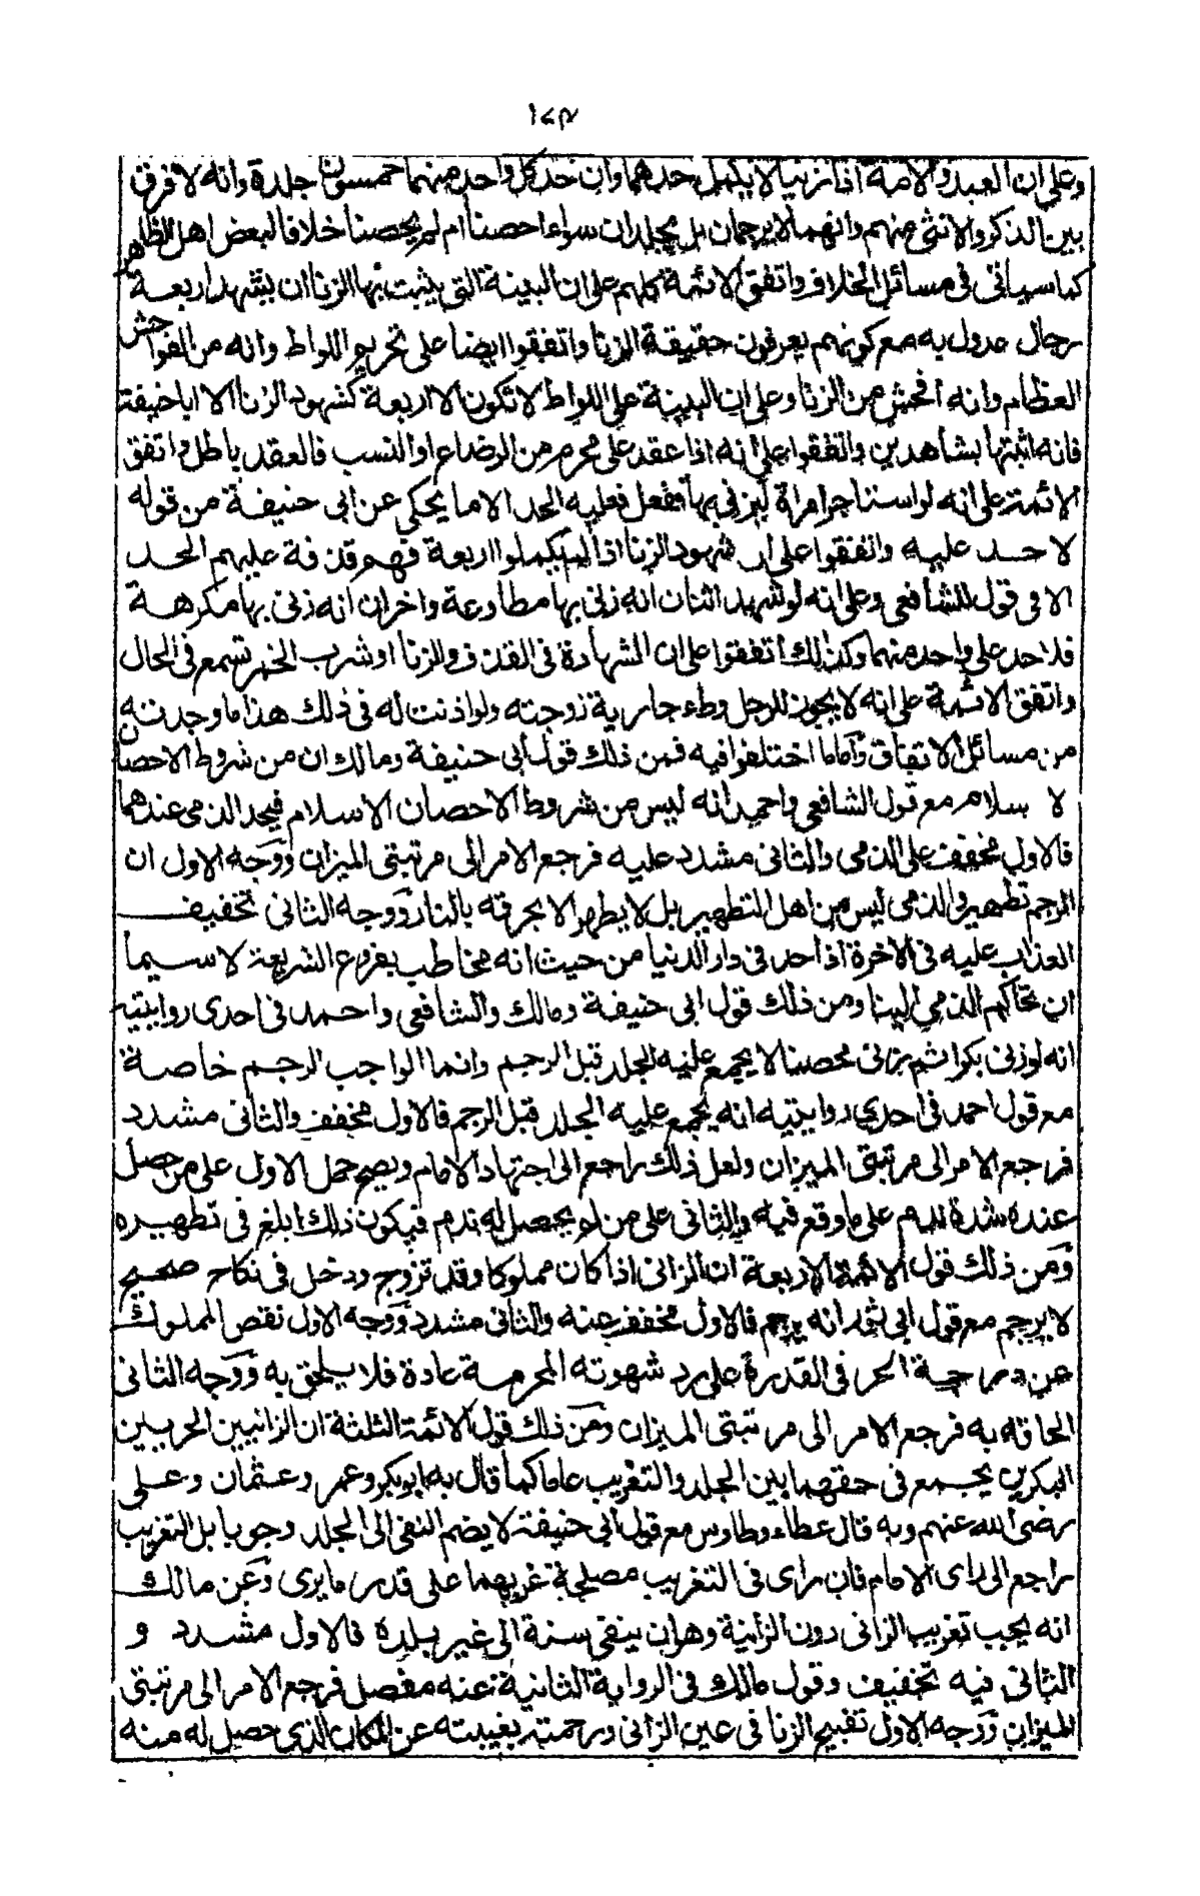 ١٤٣
وعلى ان العبد والامة اذا زنيا لا يكمل حدهما وان حد كل واحد منهما خمسون جلدة وانه لا فرق
بين الذكر والانثى منهم وانهما لا يرجمان بل يجلدان سواء احصنا ام لم يحصنا خلافا لبعض اهل الظاهر
كما سياتى فى مسائل الخلاف واتفق الائمة كلهم على ان البينة التى يثبت بها الزنا ان يشهد اربعة
رجال عدول به مع كونهم يعرفون حقيقة الزنا واتفقوا ايضا على تحريم اللواط وانه من الفواحش
العظام وانه افحش من الزنا وعلى ان البينة على اللواط لا تكون الا اربعة كشهود الزنا الا ابا حنيفة
فانه اثبتها بشاهدين واتفقوا على انه اذا عقد على محرم من الرضاع او النسب فالعقد باطل واتفق
الائمة على انه لو استاجر امراة ليزنى بها ففعل فعليه الحد الا ما يحكى عن ابى حنيفة من قوله
لا حد عليه واتفقوا على ان شهود الزنا اذا لم يكملوا اربعة فهم قذفة عليهم الحد
الا فى قول للشافعى وعلى انه لو شهد اثنان انه زنى بها مطاوعة واخران انه زنى بها مكرهة
فلا حد على واحد منهما وكذلك اتفقوا على ان الشهادة فى القذف والزنا او شرب الخمر تسمع فى الحال
واتفق الائمة على انه لا يجوز للرجل وطء جارية زوجته ولو اذنت له فى ذلك هذا ما وجدته
من مسائل الاتفاق واما ما اختلفوا فيه فمن ذلك قول ابى حنيفة ومالك ان من شروط الاحصان
لا سلام مع قول الشافعى واحمد انه ليس من شروط الاحصان الاسلام فيحد الذمى عندهما
فالاول مخفف على الذمى والثانى مشدد عليه فرجع الامر الى مرتبتى الميزان ووجه الاول ان
الرجم تطهير والذمى ليس من اهل التطهير بل لا يطهر الا بحرقه بالنار ووجه الثانى تخفيف
العذاب عليه فى الاخرة اذا حد فى دار الدنيا من حيث انه مخاطب بفروع الشريعة لا سيما
ان تحاكم الذمى الينا ومن ذلك قول ابى حنيفة ومالك والشافعى واحمد فى احدى روايتيه
انه لو زنى بكرا ثم زنى محصنا لا يجمع عليه الجلد قبل الرجم وانما الواجب الرجم خاصة
مع قول احمد فى احدى روايتيه انه يجمع عليه الجلد قبل الرجم فالاول مخفف والثانى مشدد
فرجع الامر الى مرتبتى الميزان ولعل ذلك راجع الى اجتهاد الامام ويصح حمل الاول على من حصل
عنده شدة ندم على ما وقع فيه والثانى على من لم يحصل له ندم فيكون ذلك ابلغ فى تطهيره
ومن ذلك قول الائمة الاربعة ان الزانى اذا كان مملوكا وقد تزوج ودخل فى نكاح صحيح
لا يرجم مع قول ابى ثور انه يرجم فالاول مخفف عنه والثانى مشدد ووجه الاول نقص المملوك
عن درجة الحر فى القدرة على رد شهوته المحرمة عادة فلا يلحق به ووجه الثانى
الحاقه به فرجع الامر الى مرتبتى الميزان ومن ذلك قول الائمة الثلثة ان الزانيين الحرين
البكرين يجمع فى حقهما بين الجلد والتغريب عاما كما قال به ابو بكر وعمر وعثمان وعلى
رضى الله عنهم وبه قال عطاء وطاوس مع قول ابى حنيفة لا يضم النفى الى الجلد وجوبا بل التغريب
راجع الى راى الامام فان راى فى التغريب مصلحة غربهما على قدر ما يرى وعن مالك
انه يجب تغريب الزانى دون الزانية وهو ان ينفى سنة الى غير بلده فالاول مشدد و
الثانى فيه تخفيف وقول مالك فى الرواية الثانية عنه مفصل فرجع الامر الى مرتبتى
الميزان ووجه الاول تقبيح الزنا فى عين الزانى ورحمته بغيبته عن المكان الذى حصل له منه